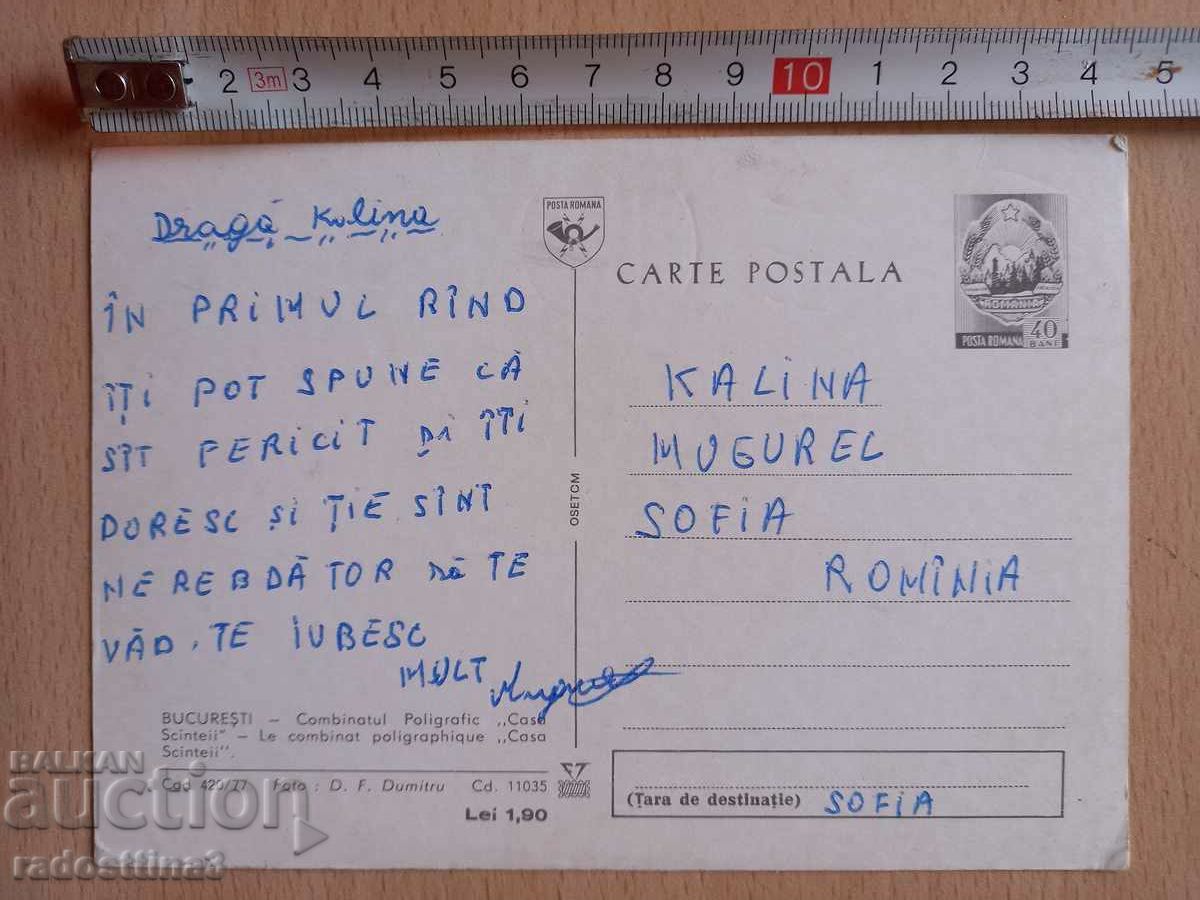 2 3m 3 4 5 6 7 8 9 10 1 2 3 4 5
Dragă Kalina
ÎN PRIMUL RÎND
ÎȚI POT SPUNE CĂ
SÎT FERICIT ȘI ÎȚI
DORESC ȘI ȚIE SÎNT
NEREBDĂTOR să TE
VĂD. TE IUBESC
MULT
BUCUREȘTI – Combinatul Poligrafic „Casa
Scînteii" – Le combinat poligraphique „Casa
Scînteii".
Cad 420/77 Foto : D. F. Dumitru Cd. 11035
Lei 1,90
OSETCM
POSTA ROMANA
CARTE POSTALA
ROMANIA
POSTA ROMANA 40
BANI
KALINA
MUGUREL
SOFIA
ROMÎNIA
(Țara de destinație) SOFIA
BALKAN
auction
radosttina3